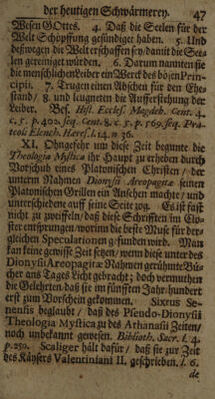 der heutigen Schwärmerey. 47
Wesen GOttes. 4. Daß die Seelen für der
Welt Schöpffung gesündiget haben. 5. Und
deßwegen die Welt erschaffen sey/ damit die See-
len gereiniget würden. 6. Darum nannten sie
die menschlichen Leiber ein Werck des bösen Prin-
cipii. 7. Trugen einen Abscheu für den Ehe-
stand / 8. und leugneten die Aufferstehung der
Leiber. Bes. Hist. Eccles. Magdeb. Cent. 4.
c. 5. p. 402. seq. Cent. 6. c. 5. p. 169. seq. Pra-
teoli Elench. Heres. l. 14. n 26.
XI. Ohngefehr um diese Zeit begunte die
Theologia Mystica ihr Haupt zu erheben durch
Vorschub eines Platonischen Christen / der
unterm Nahmen Dionysii Areopagitæ seinen
Platonischen Grillen ein Ansehen machte / und
unterschiedene auff seine Seite zog. Es ist fast
nicht zu zweiffeln / daß diese Schrifften im Clo-
ster entsprungen / worinn die beste Muse für der-
gleichen Speculationen gefunden wird. Man
kan keine gewisse Zeit setzen / wenn diese unter des
Dionysii Areopagitæ Nahmen gerühmte Bü-
cher ans Tages Licht gebracht; doch vermuthen
die Gelehrten, daß sie im fünfften Jahr-hundert
erst zum Vorschein gekommen. Sixtus Se-
nensis beglaubt / daß des Pseudo-Dionysii
Theologia Mystica zu des Athanasii Zeiten /
noch unbekant gewesen. Biblioth. Sacr. l. 4.
p. 250. Scaliger hält dafür / daß sie zur Zeit
des Käysers Valentiniani II. geschrieben. l. 6.
de